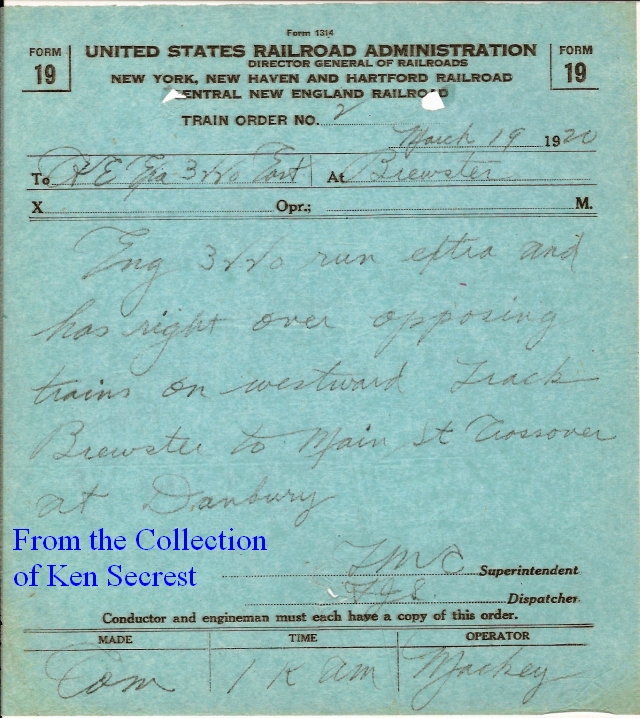 Form 1314
FORM 19
UNITED STATES RAILROAD ADMINISTRATION
DIRECTOR GENERAL OF RAILROADS
NEW YORK, NEW HAVEN AND HARTFORD RAILROAD
CENTRAL NEW ENGLAND RAILROAD
FORM 19
TRAIN ORDER NO. 2
March 19 1920
To C&E Exa 3220 East At Brewster
X Opr.; M.
Eng 3220 run extra and
has right over opposing
trains on westward Track
Brewster to Main St Crossover
at Danbury
From the Collection
of Ken Secrest
Superintendent
Dispatcher
Conductor and engineman must each have a copy of this order.
MADE TIME OPERATOR
Com 1 am Mackey